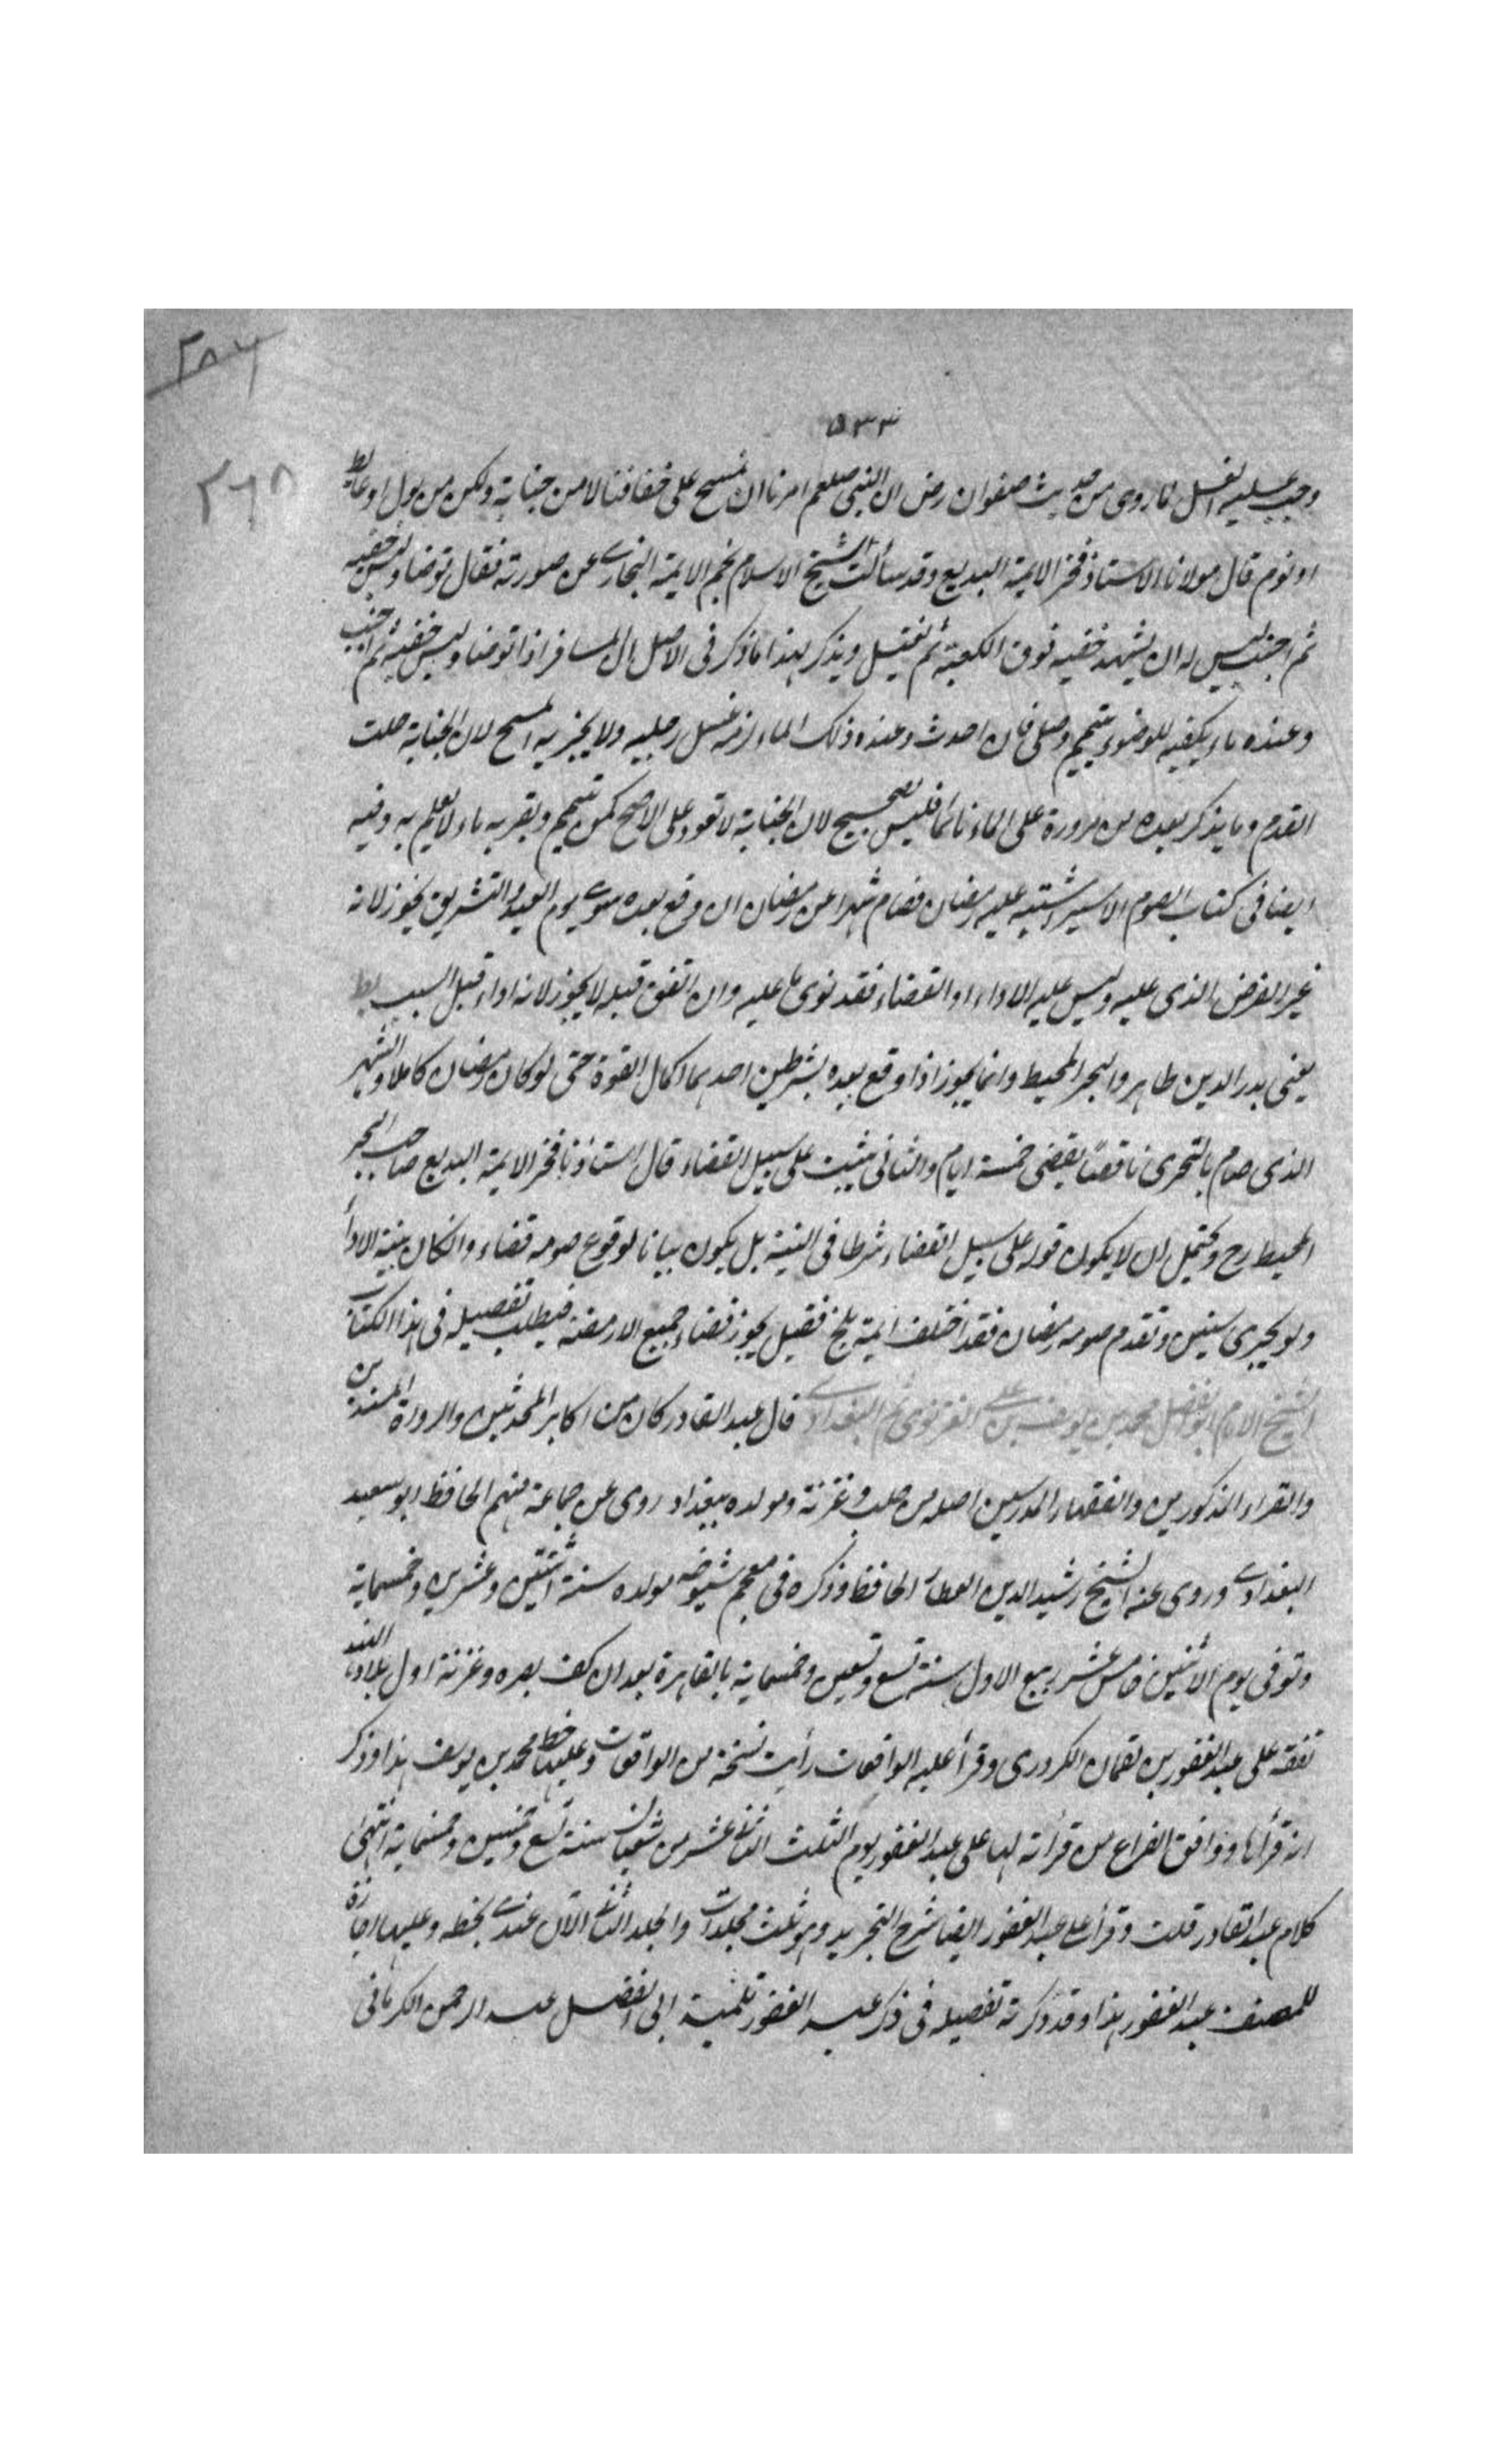 ٢٨٦
٥٣٣
٢٦٨
وجب عليه الغسل لما روى من حديث صفوان رض ان النبى صلعم امرنا ان نمسح على خفافنا لا من جنابة ولكن من بول او غائط
او نوم قال مولانا الاستاذ فخر الايمة البديع وقد سألت الشيخ الاسلام نجم الايمة البخارى عن صورته فقال توضأ ولبس خفيه
ثم اجنب ليس له ان يشد خفيه فوق الكعبة ثم يغتسل ويذكر لهذا ما ذكر فى الاصل ان المسافر اذا توضأ ولبس خفيه ثم اجنب
وعنده ماء يكفيه للوضوء يتيمم وصلى فان احدث وعنده ذلك الماء لزمه غسل رجليه ولا يجزيه المسح لان الجنابة حلت
القدم وما يذكر بعده من مروره على الماء نائما فليس بصحيح لان الجنابة لا تعود على الاصح كمن تيمم وبقربه ماء لا يعلم به وفيه
ايضا فى كتاب الصوم الاسير اشتبه عليه رمضان فصام شهرا عن رمضان ان وقع بعده سوى يوم العيد والتشريق يجوز لانه
غير الفرض الذى عليه وليس عليه الاداء او القضاء فقد نوى ما عليه وان اتفق قبله لا يجوز لانه اداء قبل السبب بط
يعنى بدر الدين طاهر والبحر المحيط وانما يجوز اذا وقع بعده بشرطين احدهما اكمال القوة حتى لو كان رمضان كاملا والشهر
الذى صام بالتحرى ناقصًا يقضى خمسة ايام والثانى يثبت على سبيل القضاء قال استاذنا فخر الايمة البديع صاحب البحر
المحيط رح ويحتمل ان لا يكون قوله على سبيل القضاء شرطا فى النية بل يكون بيانا لوقوع صومه قضاء وان كان بنية الاداء
ولو تحرى سنين وتقدم صومه رمضان فقد اختلف ايمة بلخ فقيل يجوز قضاء جميع الارمضنة فيطلب تفصيله فى هذا الكتاب
الشيخ الامام ابو الفضل محمد بن يوسف بن على الغزنوى ثم البغدادى قال عبد القادر كان من اكابر المحدثين والرواة المسندين
والقراء المذكورين والفقهاء المدرسين اصله من حلب وغزنة ومولده ببغداد روى عن جماعة منهم الحافظ ابو سعيد
البغدادى وروى عنه الشيخ رشيد الدين العطار الحافظ وذكره فى معجم شيوخه مولده سنة اثنتين وعشرين وخمسماية
وتوفى يوم الاثنين خامس عشر ربيع الاول سنة تسع وتسعين وخمسماية بالقاهرة بعد ان كف بصره وغزنة اول بلاد الهند
تفقه على عبد الغفور بن لقمان الكردرى وقرأ عليه الواقعات رأيت نسخة من الواقعات وعليها خط محمد بن يوسف هذا وذكر
انه قرأها ووافق الفراغ من قرأته لها على عبد الغفور يوم الثلث الثانى عشر من شعبان سنة تسع وخمسين وخمسماية انتهى
كلام عبد القادر قلت وقرأ على عبد الغفور ايضا شرح التجريد وهو ثلث مجلدات والمجلد الثانى الآن عندى بخطه وعليها اجازة
للمصنف عبد الغفور هذا وقد ذكرته تفصيله فى ذكر عبد الغفور تلميذ ابى الفضل عبد الرحمن الكرمانى